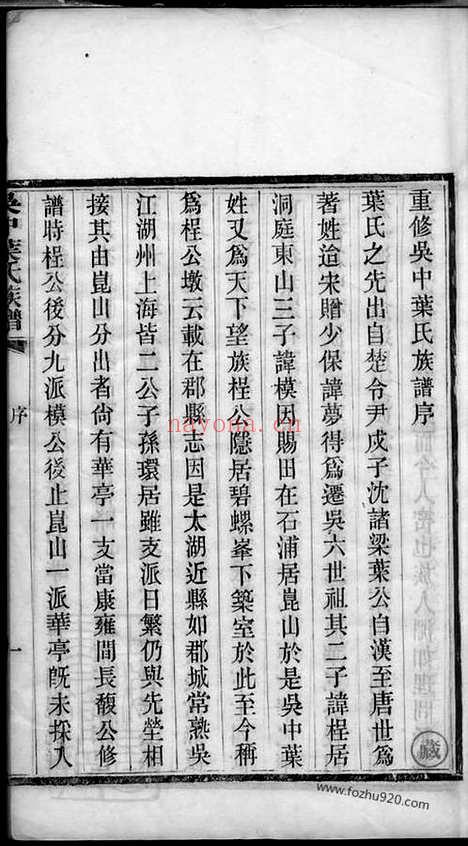 重修吳中葉氏族譜序
葉氏之先出自楚令尹戌子沈諸梁葉公自漢至唐世爲
著姓迨宋贈少保諱夢得爲遷吳六世祖其二子諱桯居
洞庭東山三子諱模因賜田在石浦居崑山於是吳中葉
姓又爲天下望族桯公隱居碧螺峯下築室於此至今稱
爲桯公墩云載在郡縣志因是太湖近縣如郡城常熟吳
江湖州上海皆二公子孫環居雖支派日繁仍與先塋相
接其由崑山分出者尙有華亭一支當康雍間長馥公修
譜時桯公後分九派模公後止崑山一派華亭旣未採入
吳中葉氏族譜
序
一
藏
nayona.cn
www.fozhu920.com